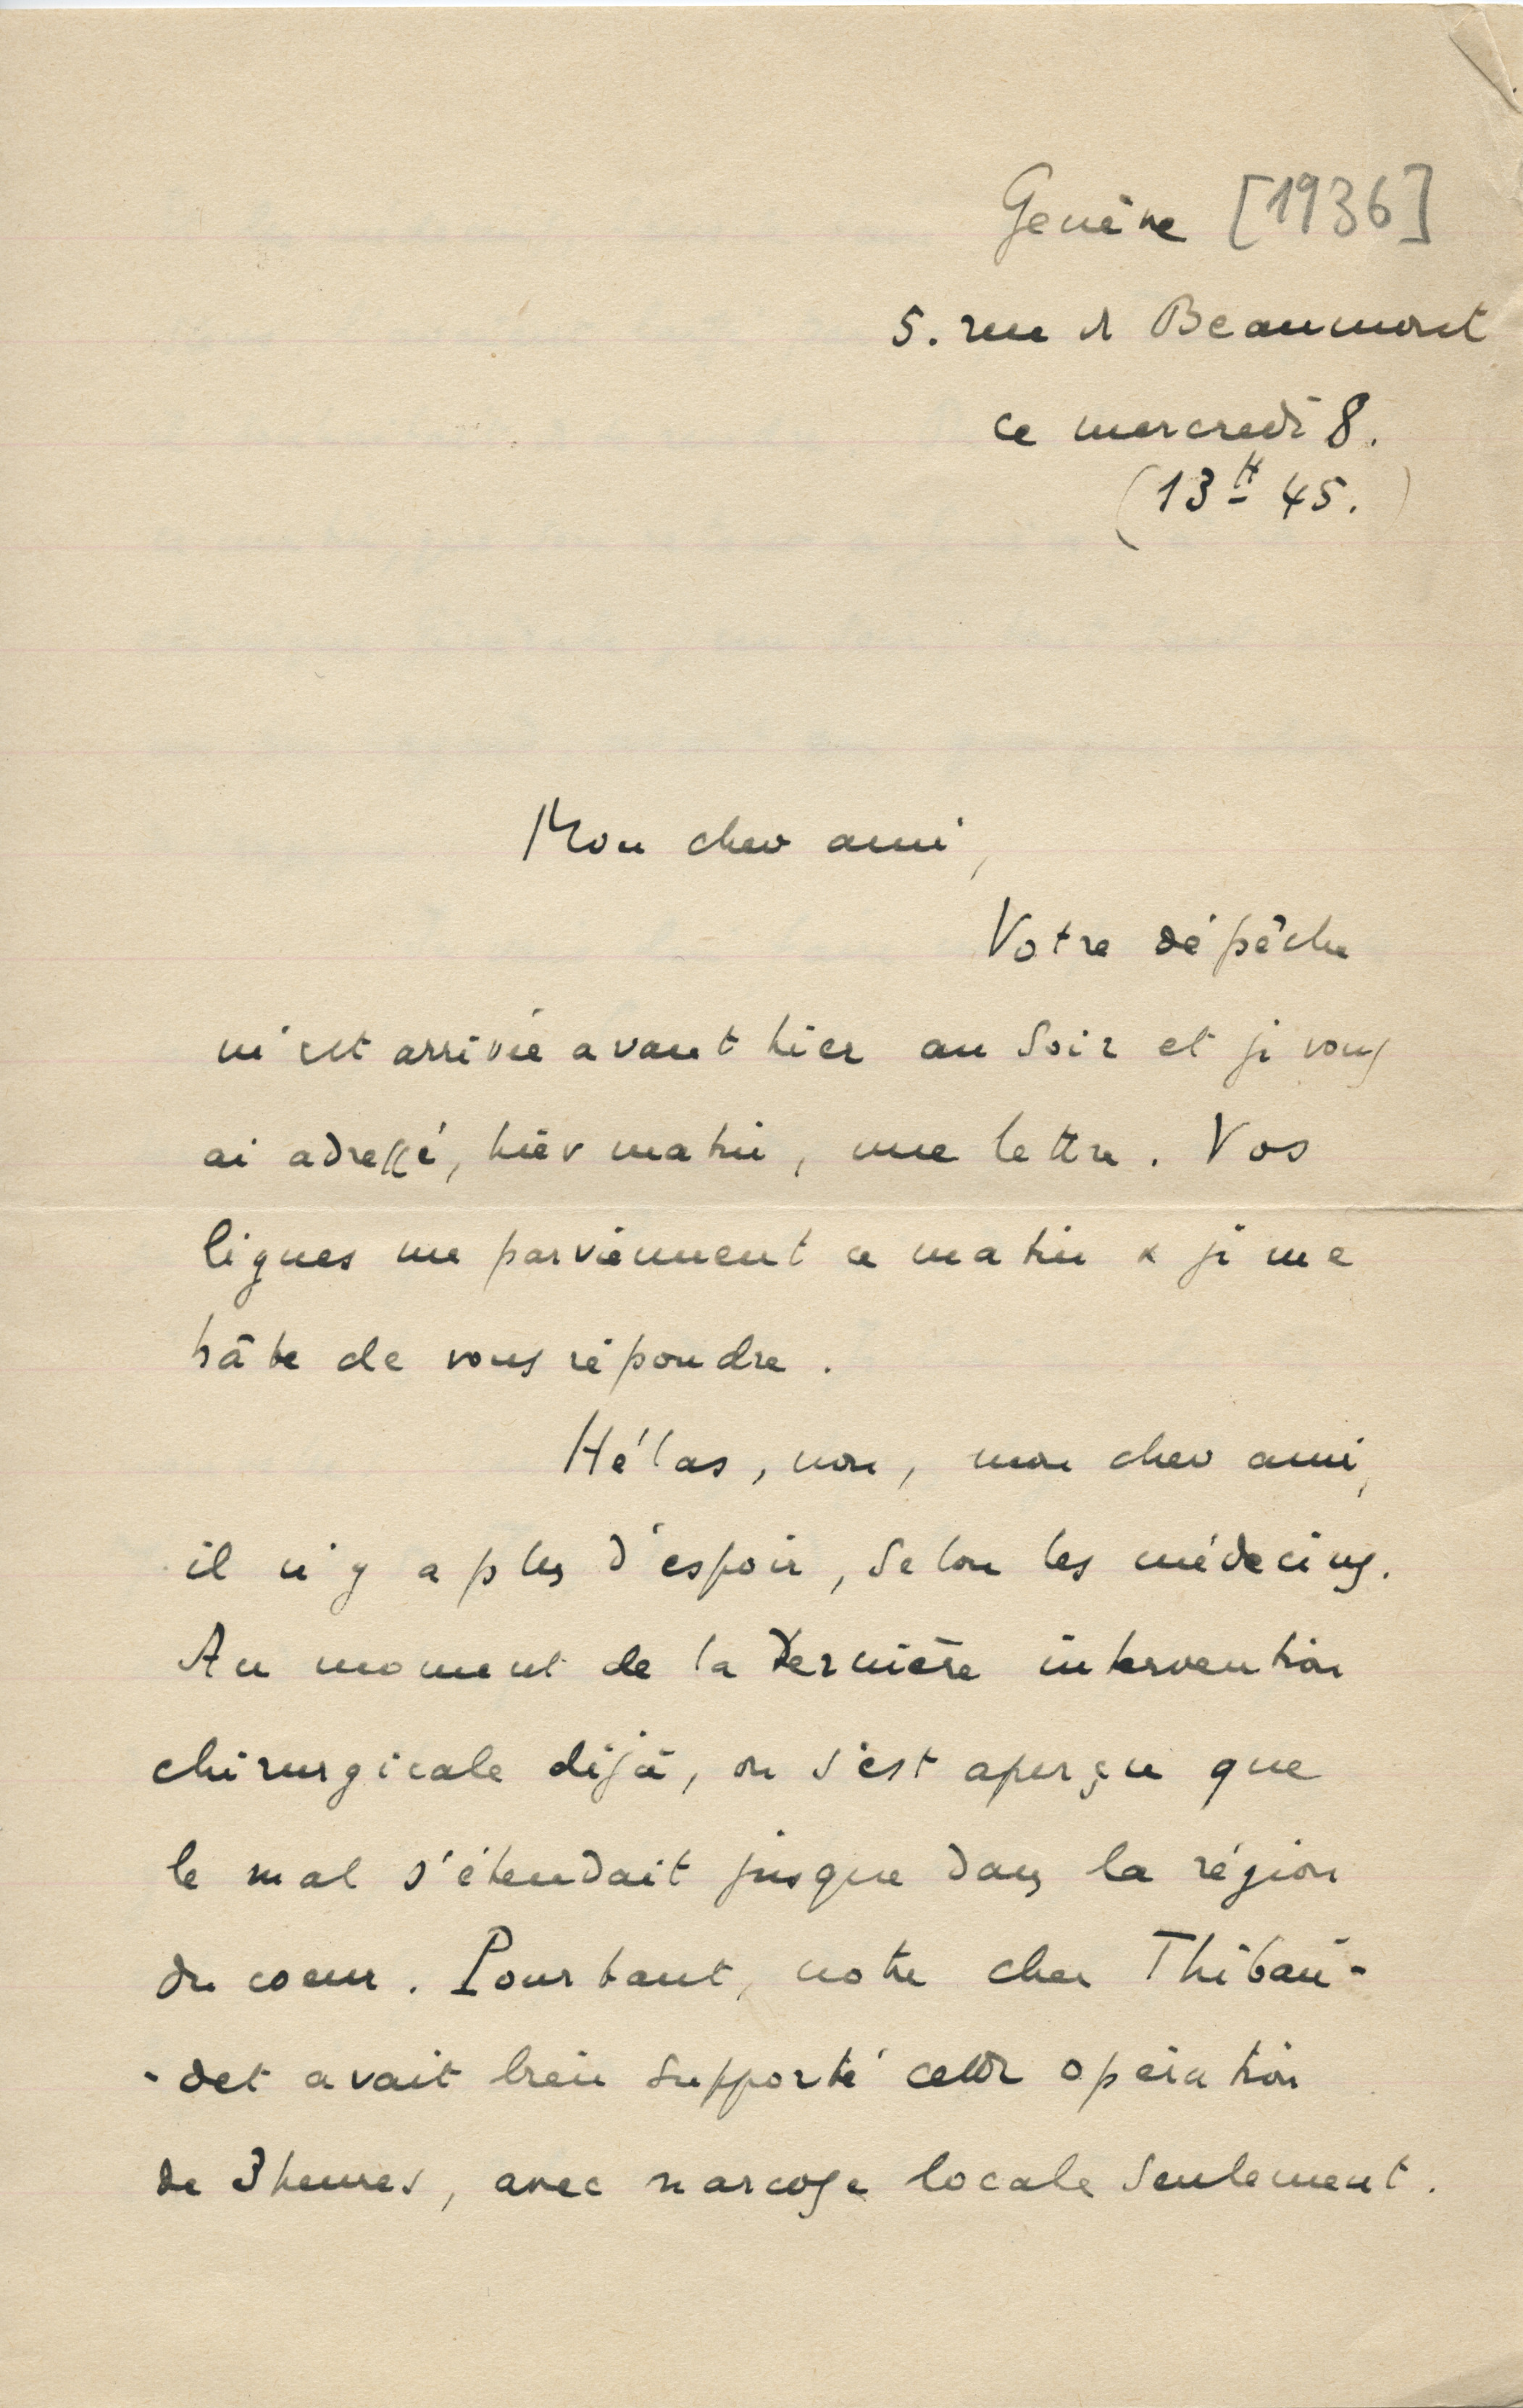 Genève [1936]
5. rue de Beaumont
ce mercredi 8.
(13 H 45.)
Mon cher ami,
Votre dépêche
m'est arrivée avant hier au soir et je vous
ai adressé, hier matin, une lettre. Vos
lignes me parviennent ce matin & je me
hâte de vous répondre.
Hélas, non, mon cher ami,
il n'y a plus d'espoir, selon les médecins.
Au moment de la dernière intervention
chirurgicale déjà, on s'est aperçu que
le mal s'étendait jusque dans la région
du coeur. Pourtant, notre cher Thibau-
-det avait bien supporté cette opération
de 3 heures, avec narcose locale seulement.